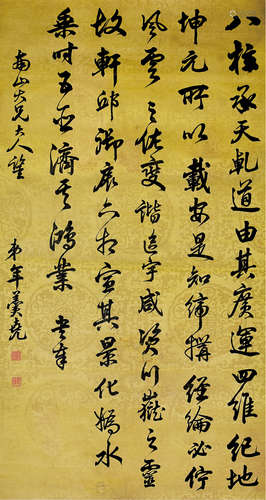 八柱承天軋道由其廣運四維紀地
坤元所以載安是知締搆經綸必佇
風雲之佐變諧造宇咸資川嶽之靈
故軒邱御宸六相宣其景化媯水
乘時五臣濟其鴻業 書奉
南山大兄大人
弟年羹堯